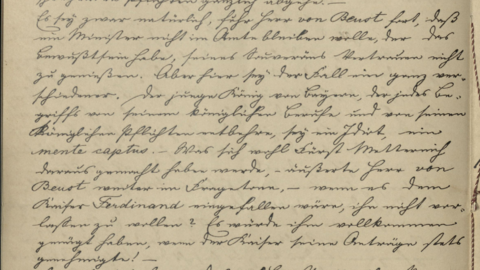 Es sey zwar natürlich, fuhr Herr von Beust fort, daß
ein Minister nicht im Amte bleiben wolle, der das
Bewußtsein habe, seines Souveräns Vertrauen nicht
zu genießen. Aber hier sey der Fall ein ganz ver-
schiedener. Der junge König von Bayern, der jedes Be-
griffs von seinem königlichen Berufe und von seinen
königlichen Pflichten entbehre, sey ein Idiot, ein
mente captus. – Was sich wohl Fürst Metternich
daraus gemacht haben würde, – äußerte Herr von
Beust weiter im Fragetone, – wenn es dem
Kaiser Ferdinand eingefallen wäre, ihn nicht ver-
lassen zu wollen? Es würde ihm vollkommen
genügt haben, wenn der Kaiser seine Anträge stets
genehmigte! –